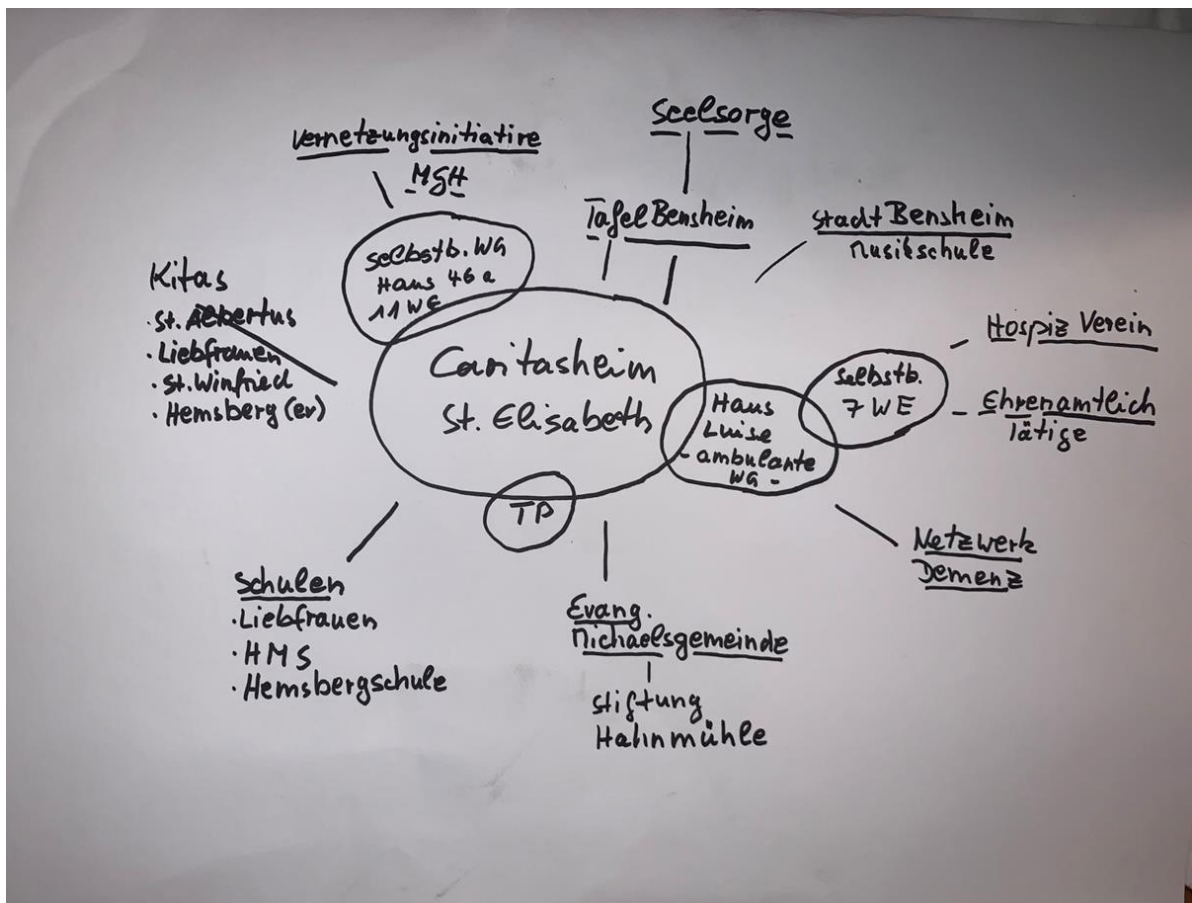 Seelsorge
Vernetzungsinitiative
MGH
Tafel Bensheim
Stadt Bensheim
Musikschule
selbstb. WG
Haus 46 a
11 WE
Kitas
· St. Albertus
· Liebfrauen
· St. Winfried
· Hemsberg (ev)
Caritasheim
St. Elisabeth
Haus
Luise
- ambulante
WG -
selbstb.
7 WE
Hospiz Verein
- Ehrenamtlich
Tätige
TP
Netzwerk
Demenz
Schulen
· Liebfrauen
· HMS
· Hemsbergschule
Evang.
Michaelsgemeinde
Stiftung
Hahnmühle